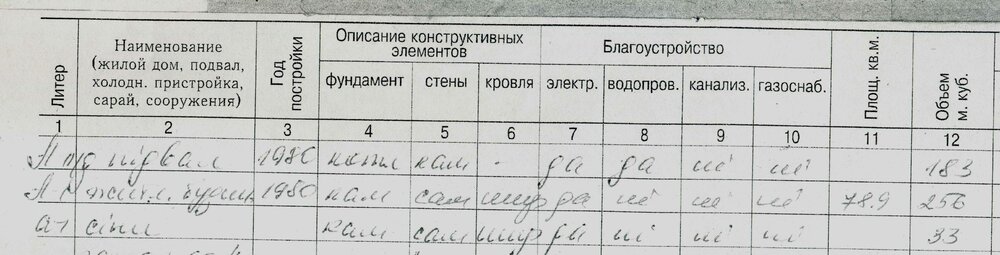 Литер
Наименование
(жилой дом, подвал,
холодн. пристройка,
сарай, сооружения)
Год
постройки
Описание конструктивных
элементов
фундамент
стены
кровля
Благоустройство
электр.
водопров.
канализ.
газоснаб.
Площ. кв.м.
Объем
м. куб.
1 2 3 4 5 6 7 8 9 10 11 12
А п/д підвал 1980 кам - да да ні ні 183
А 1 житл. 1980 кам сам шиф да ні ні ні 78.9 256
а1 сіни кам сам шиф да ні ні ні 33